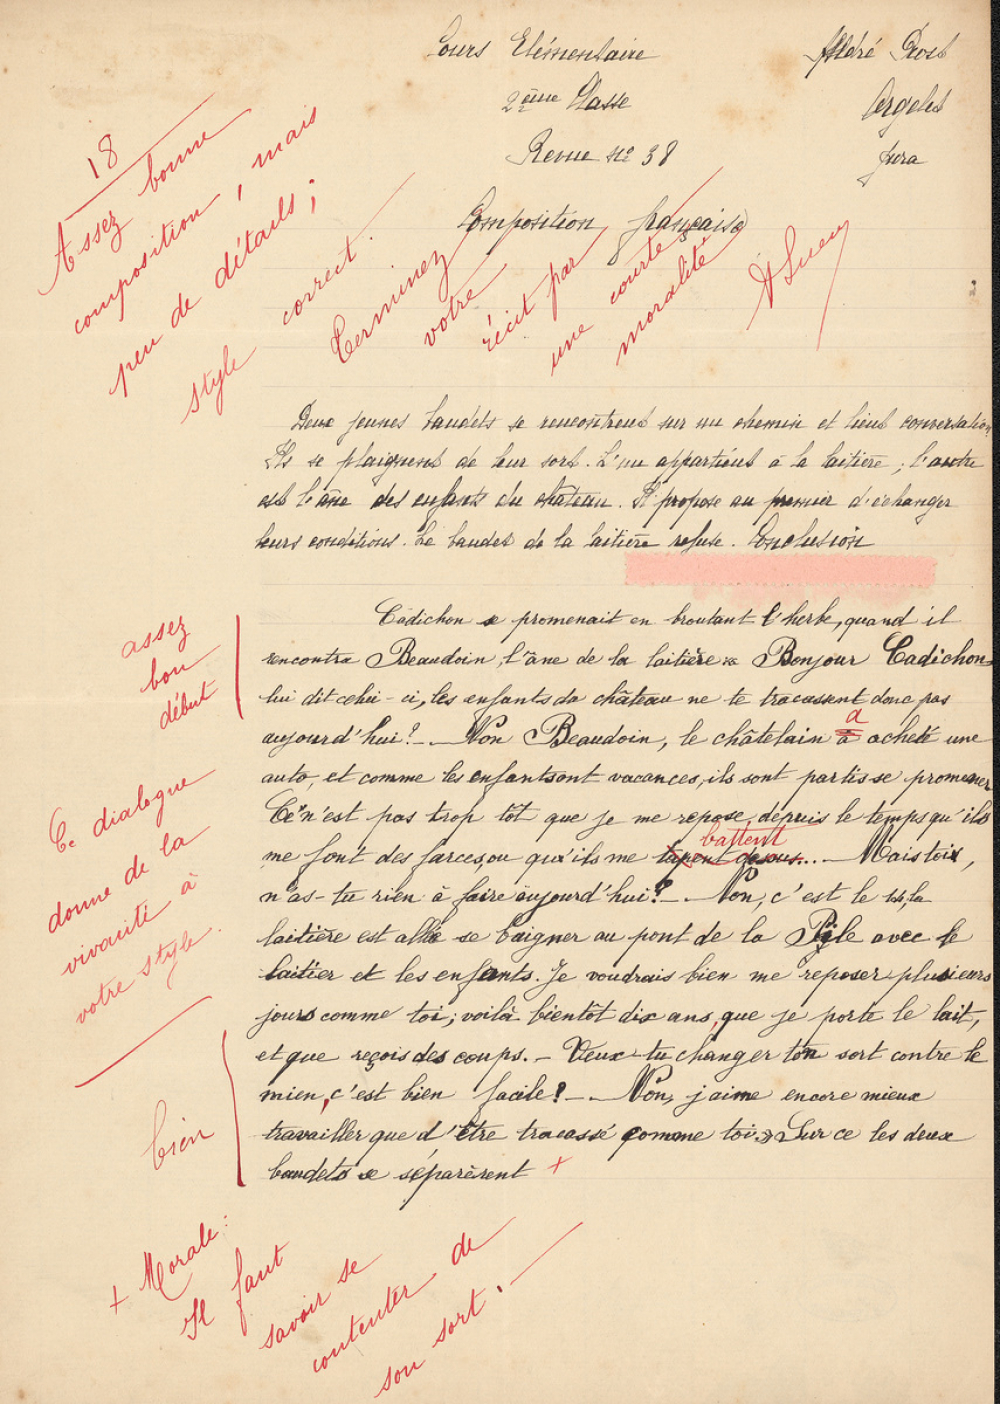 Cours Elémentaire
2ème Classe
Revue No 38
André Prost
Orgelet
Jura
Composition française
18
Assez bonne
composition, mais
peu de détails ;
style correct.
Terminez
votre
récit par
une courte
moralité
Deux jeunes baudets se rencontrent sur un chemin et lient conversation
Ils se plaignent de leur sort. L'un appartient à la laitière ; l'autre
est l'âne des enfants du château. Il propose au premier d'échanger
leurs conditions. Le baudet de la laitière refuse. Conclusion
assez
bon
début
Cadichon se promenait en broutant l'herbe, quand il
rencontra Beaudoin, l'âne de la laitière « Bonjour Cadichon
lui dit celui-ci, les enfants du château ne te tracassent donc pas
aujourd'hui? - Non Beaudoin, le châtelain à acheté une
a
auto, et comme les enfants ont vacances, ils sont partis se promener
Ce n'est pas trop tôt que je me repose, depuis le temps qu'ils
me font des farces, ou qu'ils me tapent dessus... - Mais toi,
battent
n'as-tu rien à faire aujourd'hui? - Non, c'est le 14, la
laitière est allée se baigner au pont de la Pyle avec le
laitier et les enfants. Je voudrais bien me reposer plusieurs
jours comme toi ; voilà bientôt dix ans, que je porte le lait,
et que reçois des coups. - Veux-tu changer ton sort contre le
mien, c'est bien facile? - Non, j'aime encore mieux
travailler que d'être tracassé comme toi » Sur ce les deux
baudets se séparèrent +
Ce dialogue
donne de la
vivacité à
votre style.
bien
+ Morale :
Il faut
savoir se
contenter de
son sort.